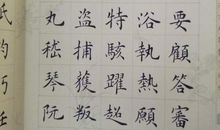 要顧答審
浴執熱願
特駭躍超
盜捕獲叛
丸嵇琴阮
紙鈞巧任